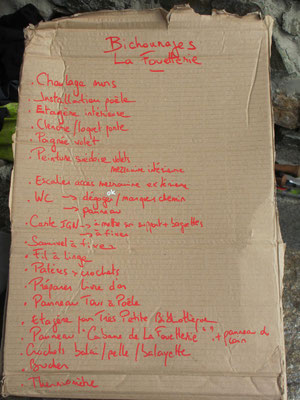 Bichounages
La Fouetterie
. Chaulage murs
. Installation poêle
. Etagère intérieure
. Clenche / loquet porte
. Poignée volet
. Peinture suédoise volets
mezzanine intérieure
. Escalier accès mezzanine extérieure
. WC → dégager / marquer chemin
→ panneau
. Carte IGN → + mettre sur support + baguettes
→ à fixer
. à fixer
. Fil à linge
. Patères + crochets
. Préparer livre d'or
. Panneau à Poêle
. Etagère pour Très Petite Bibliothèque
. Panneau "Cabane de La Fouetterie" + panneau du coin
. Crochets balai / pelle / balayette
.
. Thermomètre